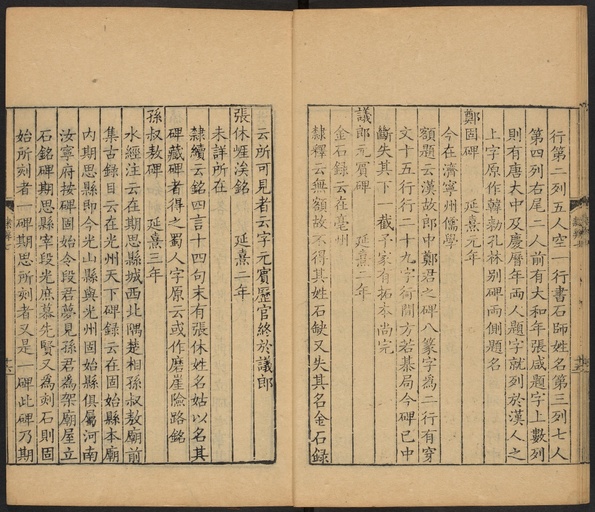 行第二列五人空一行書石師姓名第三列七人
第四列右尾二人前有大和年張咸題字上數列
則有唐大中及慶曆年兩人題字就列於漢人之
上字原作韓勑孔林别碑兩側題名
鄭固碑　延熹元年
今在濟寧州儒學
額題云漢故郎中鄭君之碑八篆字爲二行有穿
文十五行行二十九字術間方若棊局今碑已中
斷失其下一截予家有拓本尚完
議郎元賓碑　延熹二年
金石録云在亳州
隸釋云無額故不得其姓石缺又失其名金石録
云所可見者云字元賓歷官終於議郎
張休崕涘銘　延熹二年
未詳所在
隸續云銘四言十四句末有張休姓名姑以名其
碑藏碑者得之蜀人字原云或作磨崖險路銘
孫叔敖碑　延熹三年
水經注云在期思縣城西北隅楚相孫叔敖廟前
集古録目云在光州天下碑録云在固始縣本廟
内期思縣即今光山縣與光州固始縣俱屬河南
汝寧府按碑固始令段君夢見孫君爲架廟屋立
石銘碑期思縣宰段光庶慕先賢又爲刻石則固
始所刻者一碑期思所刻者又是一碑此碑乃期